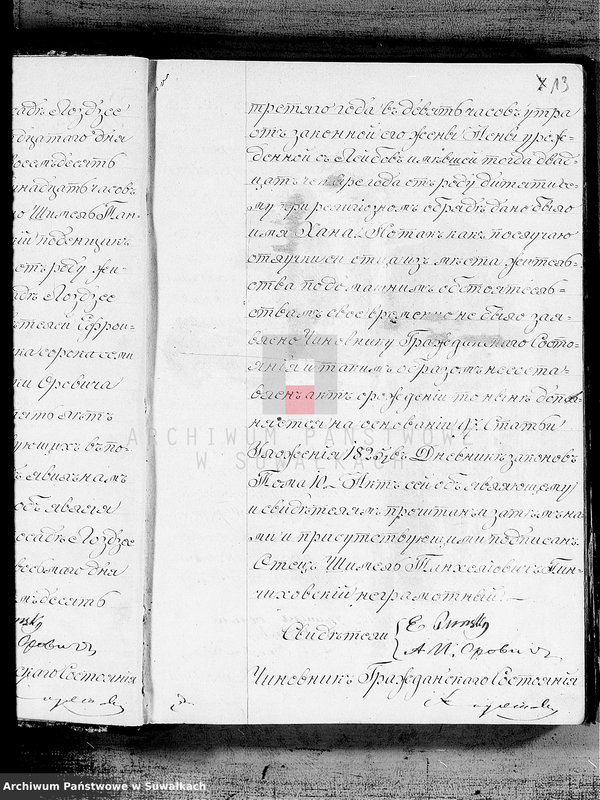 X 13
садѣ Лоздзее
дцатаго дня
восемьдесятъ
надцать часовъ
Шимель Пан-
поденщикъ
отъ роду жи-
садѣ Лоздзее
Ефрои-
ка сорока семи
Оровича
лѣтъ
ующихъ въ по-
явилъ намъ
объявляя
осадѣ Лоздзее
восьмаго дня
десятъ
Оровичъ
скаго Состоянія
третяго года въ девять часовъ утра
отъ законной его жены Пены урож-
денной съ Лейбовъ имѣвшей тогда двад-
цать четыре года отъ роду дитяти се-
му при религіозномъ обрядѣ дано было
имя Хана. Но такъ какъ по случаю
отлучки отца изъ мѣста житель-
ства по домашнимъ обстоятель-
ствамъ свое временно не было зая-
влено Чиновнику Гражданскаго Состо-
янія и такимъ образомъ не соста-
вленъ актъ о рожденіи то нынѣ допол-
няется на основаніи Статьи
Уложенія 1825 Дневникъ законовъ
Тома 10. Актъ сей объявляющему
и свидѣтелямъ прочитанъ и затѣмъ на-
ми и присутствующими подписанъ.
Отецъ Шимель Панхелѣовичъ Пин-
чиховскій неграмотный.
Свидѣтели
E Punsky
А. И. Оровичъ
Чиновникъ Гражданскаго Состоянія
ARCHIWUM PAŃSTWOWE
W SUWAŁKACH
Archiwum Państwowe w Suwałkach